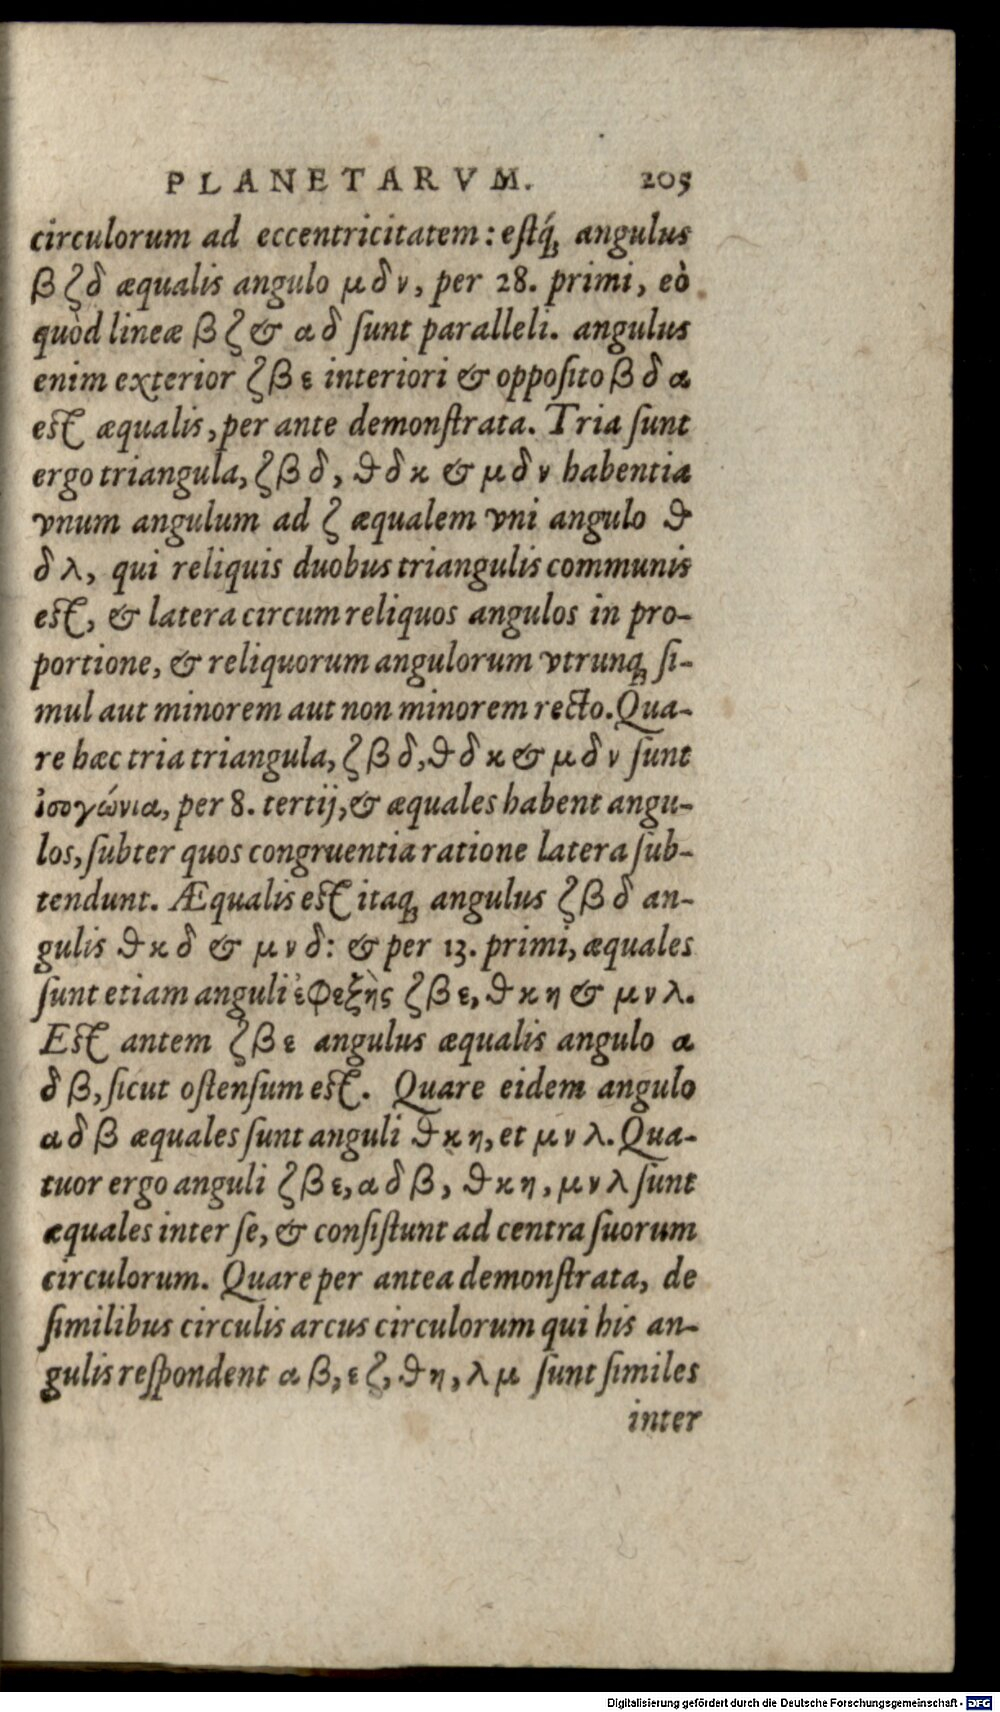 PLANETARVM. 205
circulorum ad eccentricitatem: estq́; angulus
β ζ δ æqualis angulo μ δ ν, per 28. primi, eò
quòd lineæ β ζ & α δ sunt paralleli. angulus
enim exterior ζ β ε interiori & opposito β δ α
est æqualis, per ante demonstrata. Tria sunt
ergo triangula, ζ β δ, ϑ δ κ & μ δ ν habentia
vnum angulum ad ζ æqualem vni angulo ϑ
δ λ, qui reliquis duobus triangulis communis
est, & latera circum reliquos angulos in pro-
portione, & reliquorum angulorum vtrunq; si-
mul aut minorem aut non minorem recto. Qua-
re hæc tria triangula, ζ β δ, ϑ δ κ & μ δ ν sunt
ἰσογώνια, per 8. tertij, & æquales habent angu-
los, subter quos congruentia ratione latera sub-
tendunt. Æqualis est itaq; angulus ζ β δ an-
gulis ϑ κ δ & μ ν δ: & per 13. primi, æquales
sunt etiam anguli ἐφεξὴς ζ β ε, ϑ κ η & μ ν λ.
Est antem ζ β ε angulus æqualis angulo α
δ β, sicut ostensum est. Quare eidem angulo
α δ β æquales sunt anguli ϑ κ η, et μ ν λ. Qua-
tuor ergo anguli ζ β ε, α δ β, ϑ κ η, μ ν λ sunt
æquales inter se, & consistunt ad centra suorum
circulorum. Quare per antea demonstrata, de
similibus circulis arcus circulorum qui his an-
gulis respondent α β, ε ζ, ϑ η, λ μ sunt similes
inter
Digitalisierung gefördert durch die Deutsche Forschungsgemeinschaft - DFG